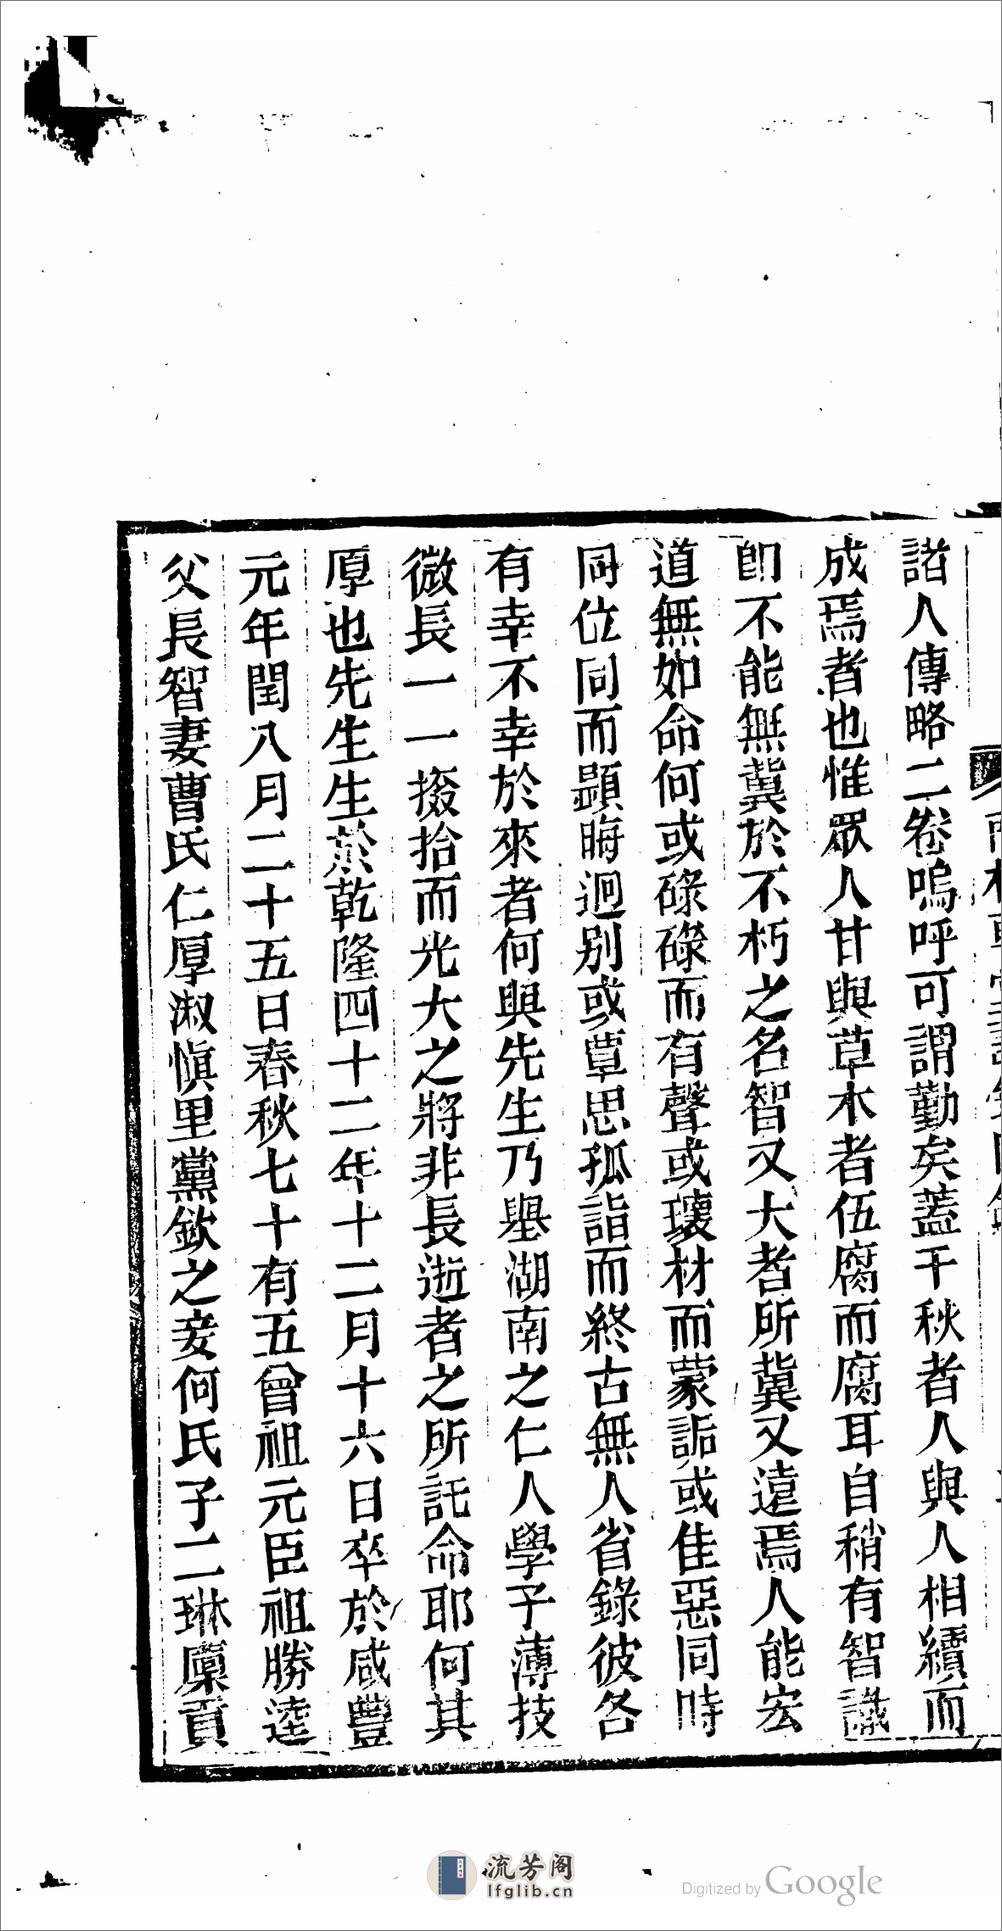 諸人傳略二卷嗚呼可謂勤矣蓋千秋者人與人相續而
成焉者也惟眾人甘與草木者伍腐而腐耳自稍有智識
卽不能無冀於不朽之名智又大者所冀又遠焉人能宏
道無如命何或碌碌而有聲或瓌材而蒙詬或佳惡同時
同位同而顯晦迥别或覃思孤詣而終古無人省錄彼各
有幸不幸於來者何與先生乃舉湖南之仁人學子薄技
微長一一掇拾而光大之將非長逝者之所託命耶何其
厚也先生生於乾隆四十二年十二月十六日卒於咸豐
元年閏八月二十五日春秋七十有五曾祖元臣祖勝逵
父長智妻曹氏仁厚淑愼里黨欽之妾何氏子二琳廩貢
流芳阁
lfglib.cn
Digitized by Google